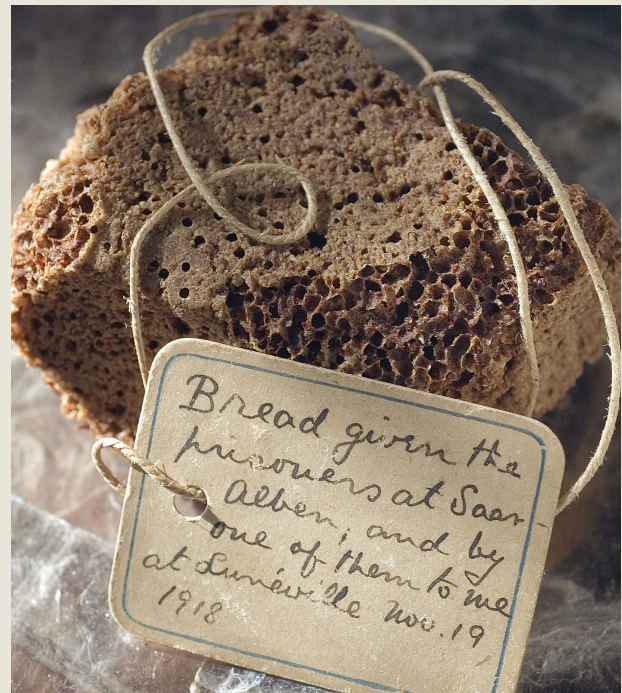 Bread given the
prisoners at Saar-
Alben; and by
one of them to me
at Lunéville Nov. 19
1918